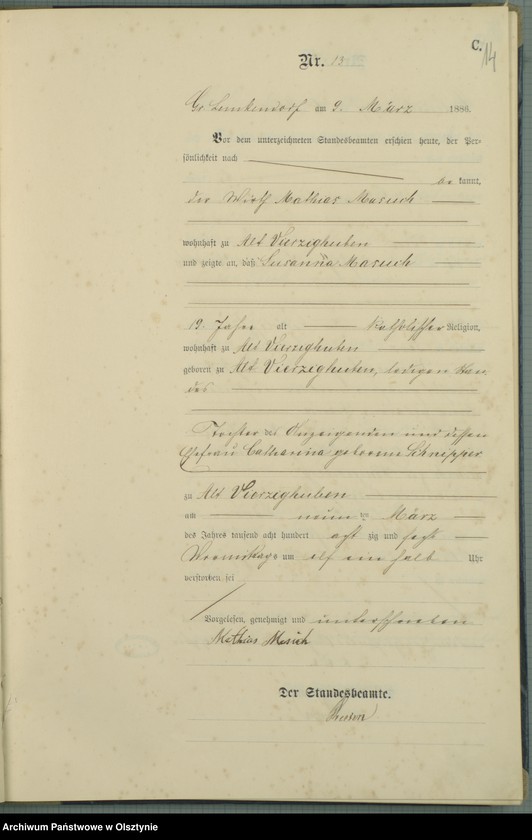 C.
14
Nr. 13
Gr Lemkendorf am 9. März 1886.
Vor dem unterzeichneten Standesbeamten erschien heute, der Per-
sönlichkeit nach
be kannt,
der Wirth Mathias Masuch
wohnhaft zu Alt Vierzighuben
und zeigte an, daß Susanna Masuch
19 Jahre alt Katholischer Religion,
wohnhaft zu Alt Vierzighuben
geboren zu Alt Vierzighuben, ledigen Stan-
des
Tochter des Anzeigenden und dessen
Ehefrau Catharina geborene Schnipper
zu Alt Vierzighuben
am neun ten März
des Jahres tausend acht hundert acht zig und sechs
Vormittags um elf ein halb Uhr
verstorben sei
Vorgelesen, genehmigt und unterschrieben
Mathias Masuch
Der Standesbeamte.
Archiwum Państwowe w Olsztynie